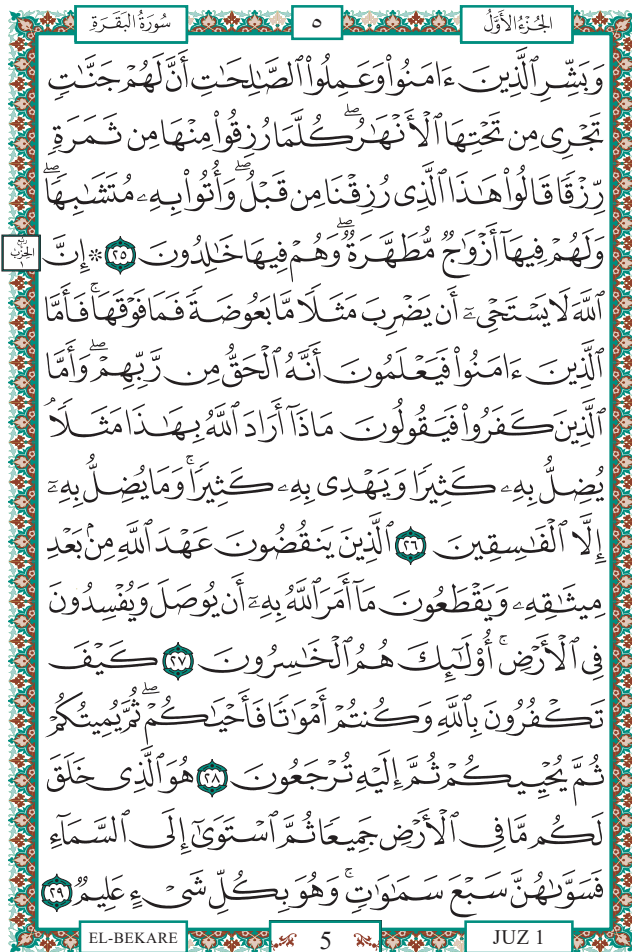 الجُزْءُ الأَوَّلُ ٥ سُورَةُ البَقَرَةِ
وَبَشِّرِ ٱلَّذِينَ ءَامَنُواْ وَعَمِلُواْ ٱلصَّٰلِحَٰتِ أَنَّ لَهُمْ جَنَّٰتٍ
تَجْرِى مِن تَحْتِهَا ٱلْأَنْهَٰرُۖ كُلَّمَا رُزِقُواْ مِنْهَا مِن ثَمَرَةٍ
رِّزْقًا قَالُواْ هَٰذَا ٱلَّذِى رُزِقْنَا مِن قَبْلُۖ وَأُتُواْ بِهِۦ مُتَشَٰبِهًاۖ
وَلَهُمْ فِيهَآ أَزْوَٰجٌ مُّطَهَّرَةٌۖ وَهُمْ فِيهَا خَٰلِدُونَ ٢٥ * إِنَّ
رُبْعُ
الحِزْبِ
١
ٱللَّهَ لَا يَسْتَحْىِۦٓ أَن يَضْرِبَ مَثَلًا مَّا بَعُوضَةً فَمَا فَوْقَهَاۚ فَأَمَّا
ٱلَّذِينَ ءَامَنُواْ فَيَعْلَمُونَ أَنَّهُ ٱلْحَقُّ مِن رَّبِّهِمْۖ وَأَمَّا
ٱلَّذِينَ كَفَرُواْ فَيَقُولُونَ مَاذَآ أَرَادَ ٱللَّهُ بِهَٰذَا مَثَلًاۘ
يُضِلُّ بِهِۦ كَثِيرًا وَيَهْدِى بِهِۦ كَثِيرًاۚ وَمَا يُضِلُّ بِهِۦٓ
إِلَّا ٱلْفَٰسِقِينَ ٢٦ ٱلَّذِينَ يَنقُضُونَ عَهْدَ ٱللَّهِ مِنۢ بَعْدِ
مِيثَٰقِهِۦ وَيَقْطَعُونَ مَآ أَمَرَ ٱللَّهُ بِهِۦٓ أَن يُوصَلَ وَيُفْسِدُونَ
فِى ٱلْأَرْضِۚ أُوْلَٰٓئِكَ هُمُ ٱلْخَٰسِرُونَ ٢٧ كَيْفَ
تَكْفُرُونَ بِٱللَّهِ وَكُنتُمْ أَمْوَٰتًا فَأَحْيَٰكُمْۖ ثُمَّ يُمِيتُكُمْ
ثُمَّ يُحْيِيكُمْ ثُمَّ إِلَيْهِ تُرْجَعُونَ ٢٨ هُوَ ٱلَّذِى خَلَقَ
لَكُم مَّا فِى ٱلْأَرْضِ جَمِيعًا ثُمَّ ٱسْتَوَىٰٓ إِلَى ٱلسَّمَآءِ
فَسَوَّىٰهُنَّ سَبْعَ سَمَٰوَٰتٍۚ وَهُوَ بِكُلِّ شَىْءٍ عَلِيمٌ ٢٩
EL-BEKARE 5 JUZ 1